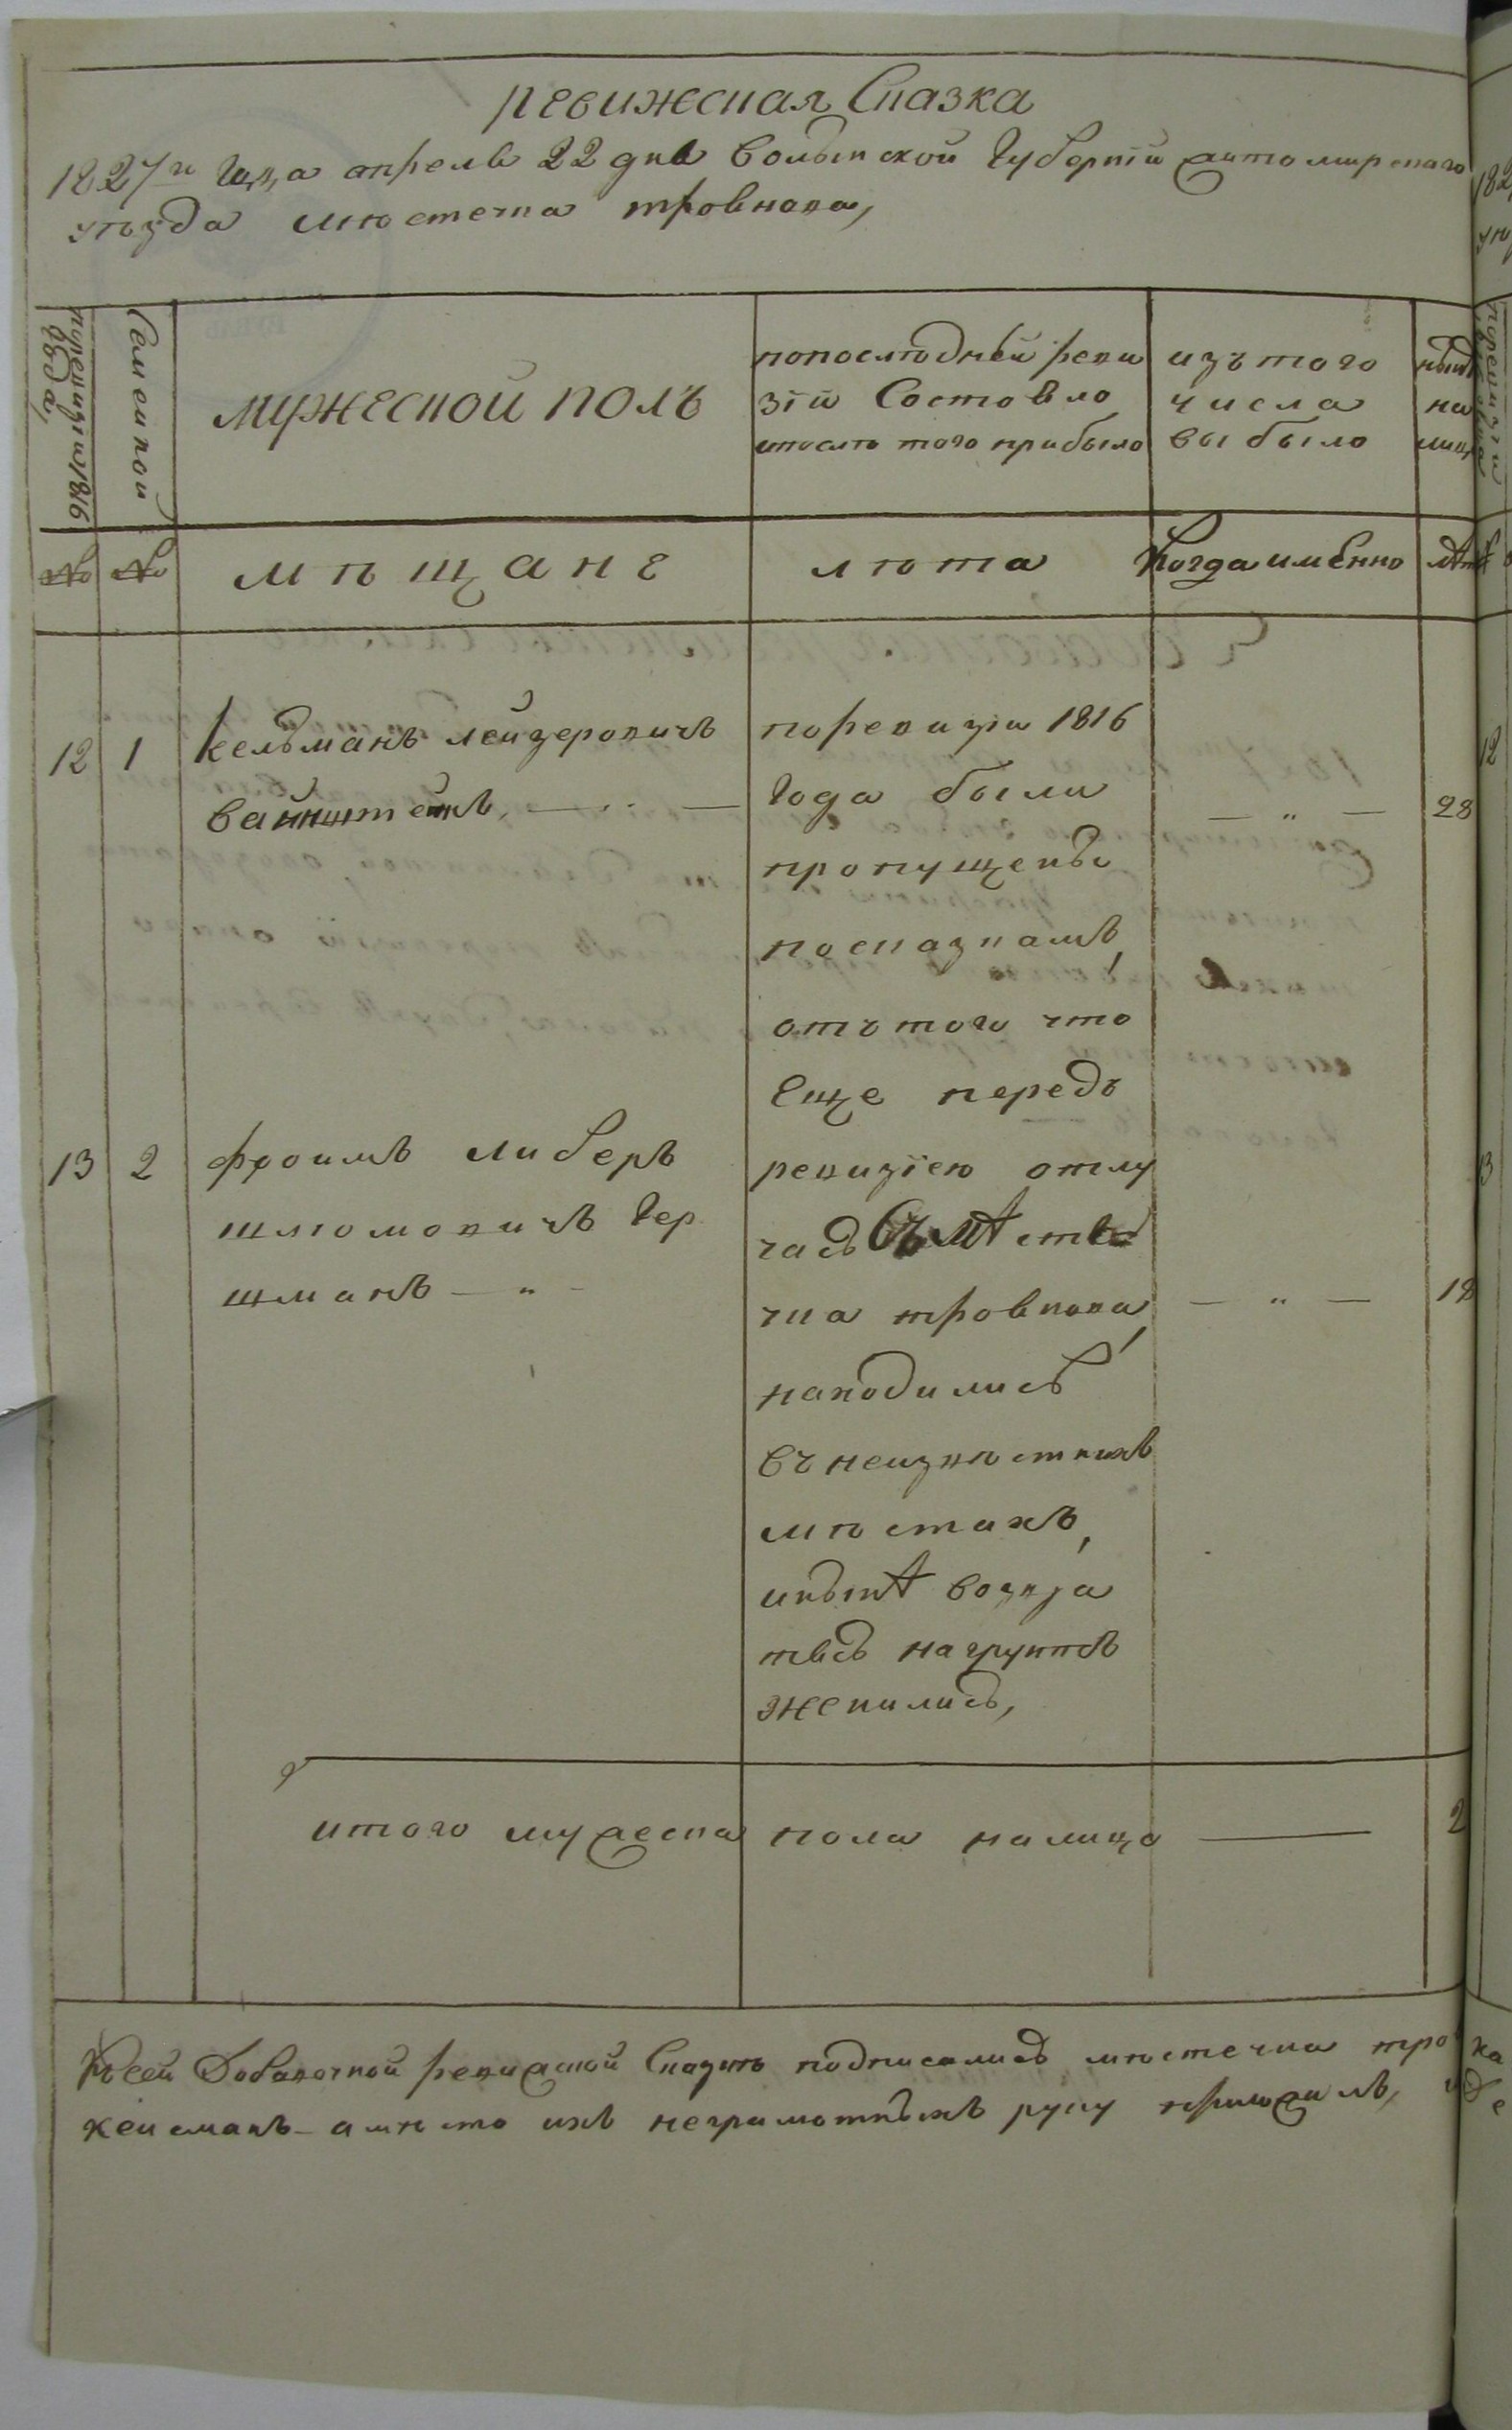 Ревижская Сказка
1827го Года апреля 22 дня Волынской Губернiи Житомирскаго
уѣзда мѣстечка Тровкова,
поревизiи 1816 года,
Семейной
мужеской полъ
попослѣдней реви
зiи Состояло
ипослѣ того прибыло
изъ того
числа
выбыло
нынѣ
на
лицо
№
№
мѣщане
лѣта
Когда имѣнно
лѣт
12
1
Кельманъ Лейзеровичъ
Вайнштейнъ, — " —
поревизiи 1816
Года были
пропущены
посказкамъ,
отъ того что
Еще передъ
ревизiею отлу
чась Съ мѣсте
чка тровкова,
находились
въ неизвѣстнихъ
мѣстахъ,
инынѣ возвра
тясь на грунтъ
женились,
— " —
28
13
2
Фроимъ Либеръ
Шлiомовичъ Гер
шманъ — " —
— " —
18
итого мужеска пола налицо —
2
Ксей Добавочной ревижской Сказкѣ подписались мѣстечка тро
Кейсманъ а мѣсто ихъ неграмотныхъ руку приложилъ,